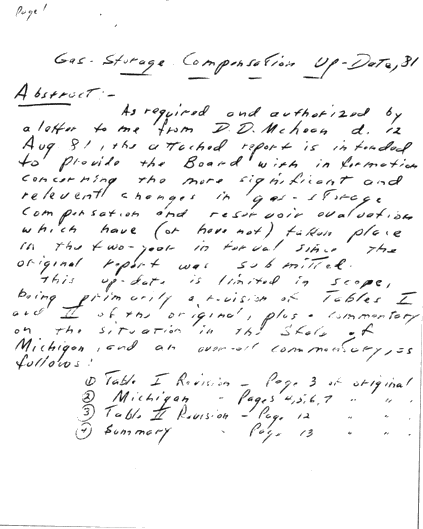 Page 1
Gas-Storage Compensation Up-Data, 81
Abstract:-
As required and authorized by
a letter to me from D.D. McLean d. 12
Aug 81, the attached report is intended
to provide the Board with information
concerning the more significant and
relevent changes in gas-storage
compensation and reservoir evaluation
which have (or have not) taken place
in the two-year interval since the
original report was submitted.
This up-date is limited in scope,
being primarily a revision of Tables I
and II of the original, plus a commentary
on the situation in the State of
Michigan, and an over-all commentary, as
follows:
① Table I Revision - Page 3 of original
② Michigan - Pages 4,5,6,7 " " .
③ Table II Revision - Page 12 " " .
④ Summary - Page 13 " " .